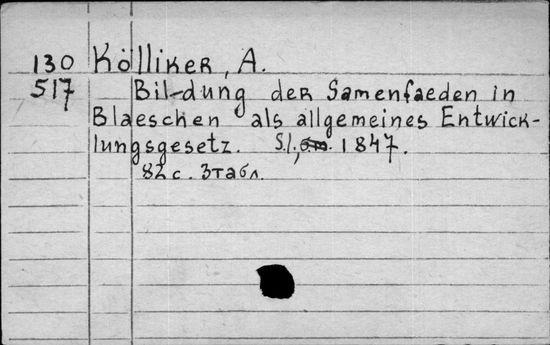 130 Kölliker, A.
517 Bil-dung der Samenfaeden in
Blaeschen als allgemeines Entwick-
lungsgesetz. S.l., 1847.
82 с. 3табл.